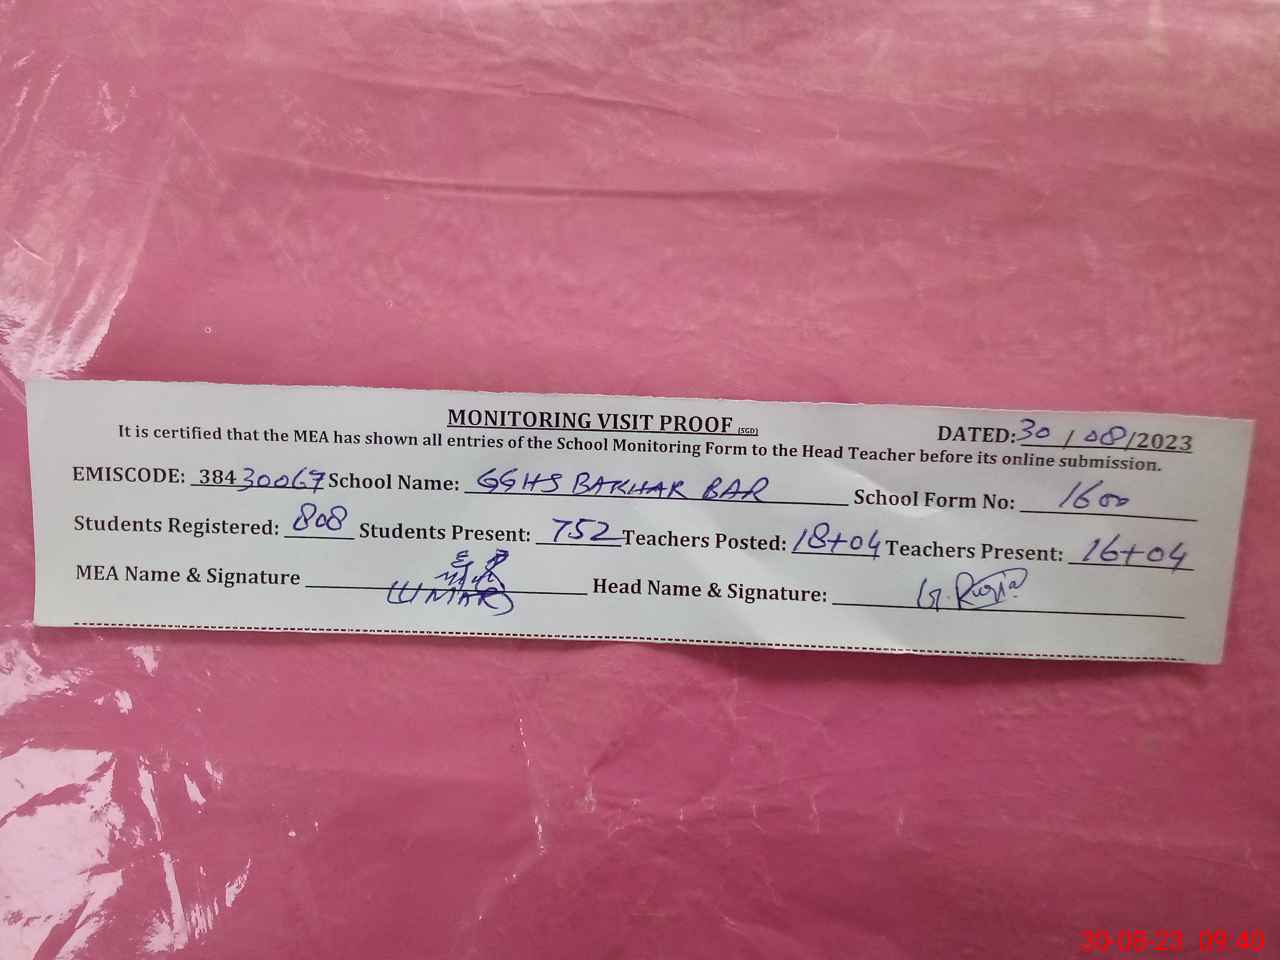 MONITORING VISIT PROOF (SGD)
DATED: 30 / 08 /2023
It is certified that the MEA has shown all entries of the School Monitoring Form to the Head Teacher before its online submission.
EMISCODE: 38430067 School Name: GGHS BAKHAR BAR School Form No: 1600
Students Registered: 808 Students Present: 752 Teachers Posted: 18+04 Teachers Present: 16+04
MEA Name & Signature UMAR Head Name & Signature:
30-08-23 09:40